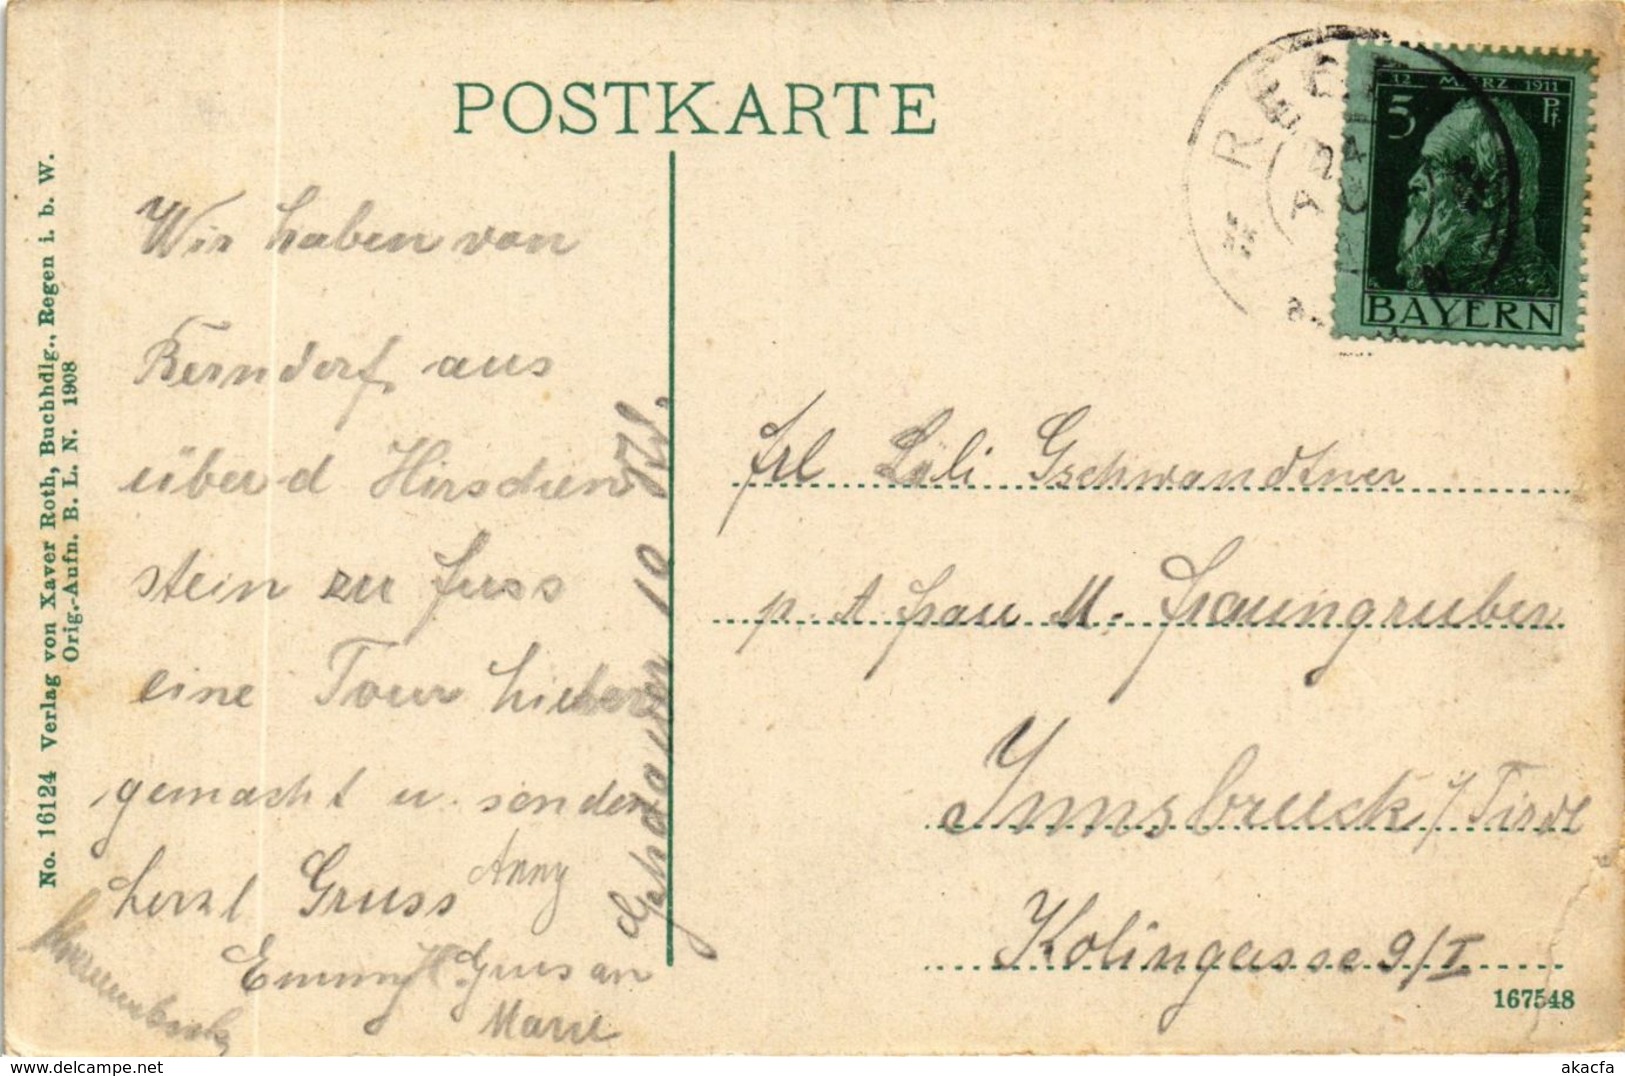 POSTKARTE
12 MÆRZ 1911
5 Pf.
BAYERN
REGEN
24
No. 16124 Verlag von Xaver Roth, Buchhdlg., Regen i. b. W.
Orig.-Aufn. B. L. N. 1908
Wir haben von
aus
über d Hirschen
stein zu Fuss
eine Tour hieher
gemacht u. senden
herzl Gruss Anny
Emmy Gruss an
Marie
Frl Loli Gschwandtner
p. A. Frau M. Fraungruber
Innsbruck i/Tirol
Kolingasse 9/I
167548
akacfa